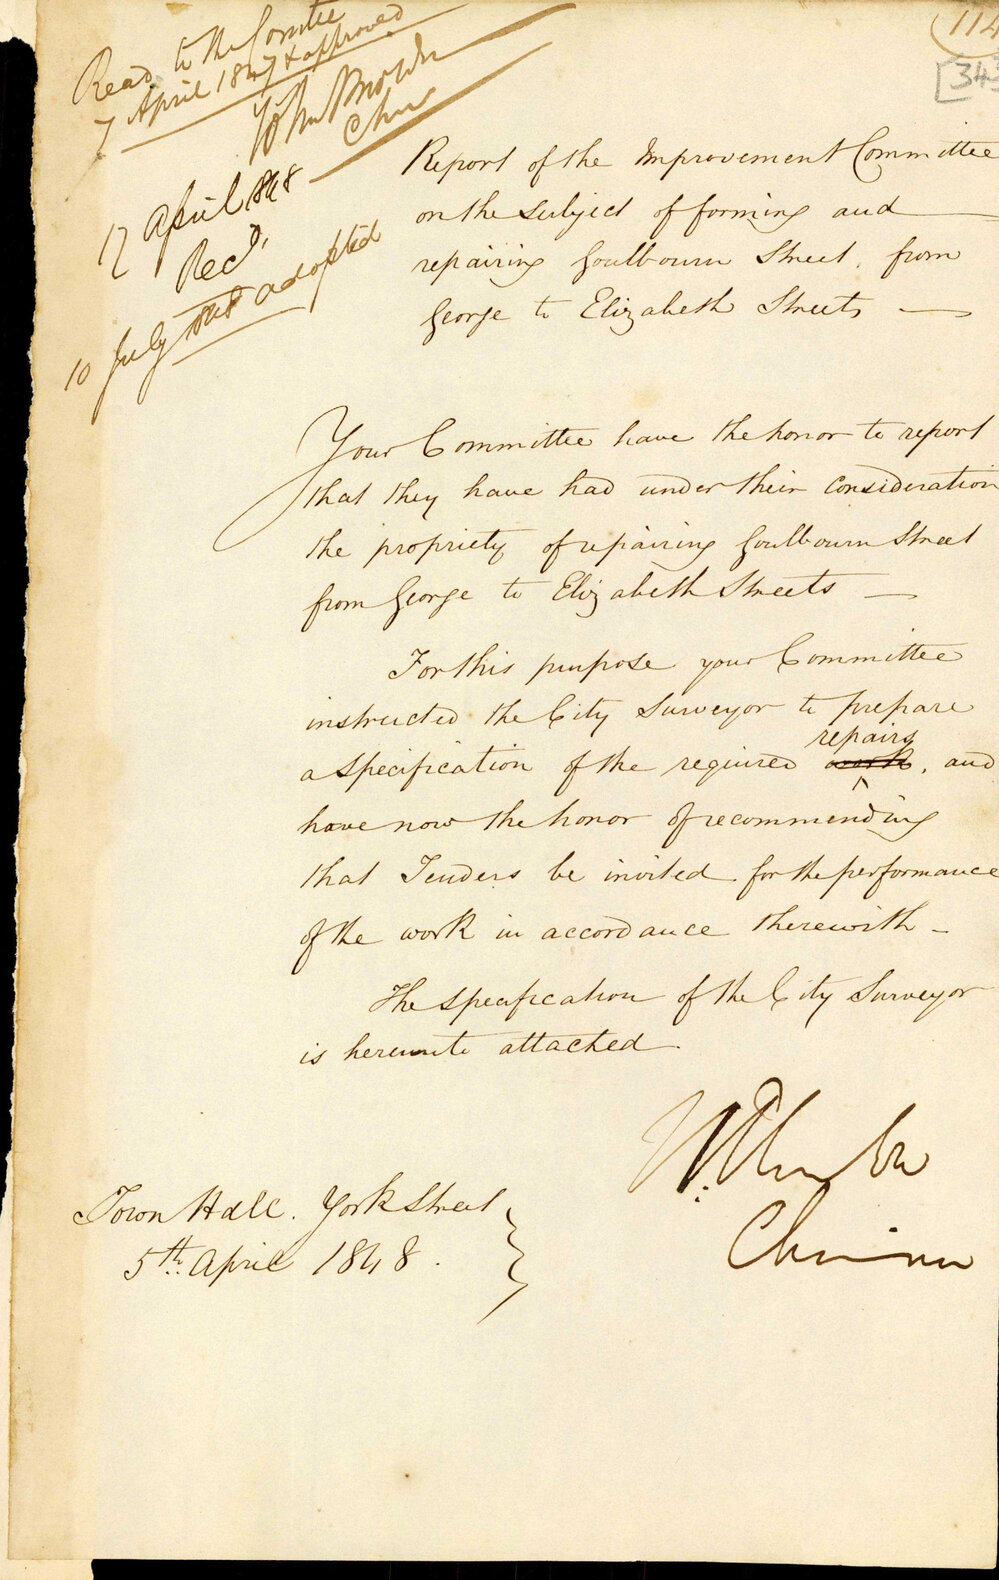 Read to the Comtee
7 April 1847 & approved
Chn
12 April 1848
Recd,
10 July adopted
114
343
Report of the Improvement Committee
on the subject of forming and
repairing Goulbourn Street, from
George to Elizabeth Streets —
Your Committee have the honor to report
that they have had under their consideration
the propriety of repairing Goulbourn Street
from George to Elizabeth Streets —
For this purpose your Committee
instructed the City Surveyor to prepare
repairs
a specification of the required work, and
have now the honor of recommending
that Tenders be invited for the performance
of the work in accordance therewith –
The specification of the City Surveyor
is herewith attached.
Chairman
Town Hall. York Street
5th April 1848.